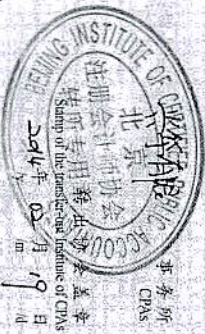 BEIJING INSTITUTE OF CERTIFIED PUBLIC ACCOUNTANTS
事务所
CPAs
北京
注册会计师协会
转所专用章
转出协会盖章
Stamp of the transfer-out Institute of CPAs
2014年 02月 19日
y m d